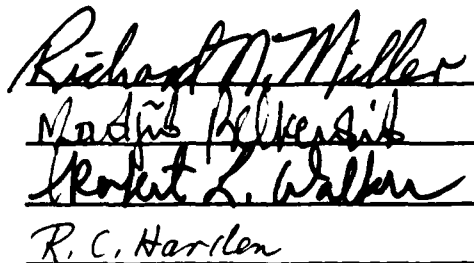 Richard N. Miller
Madjid Belkerdid
Robert L. Walker
R. C. Harden